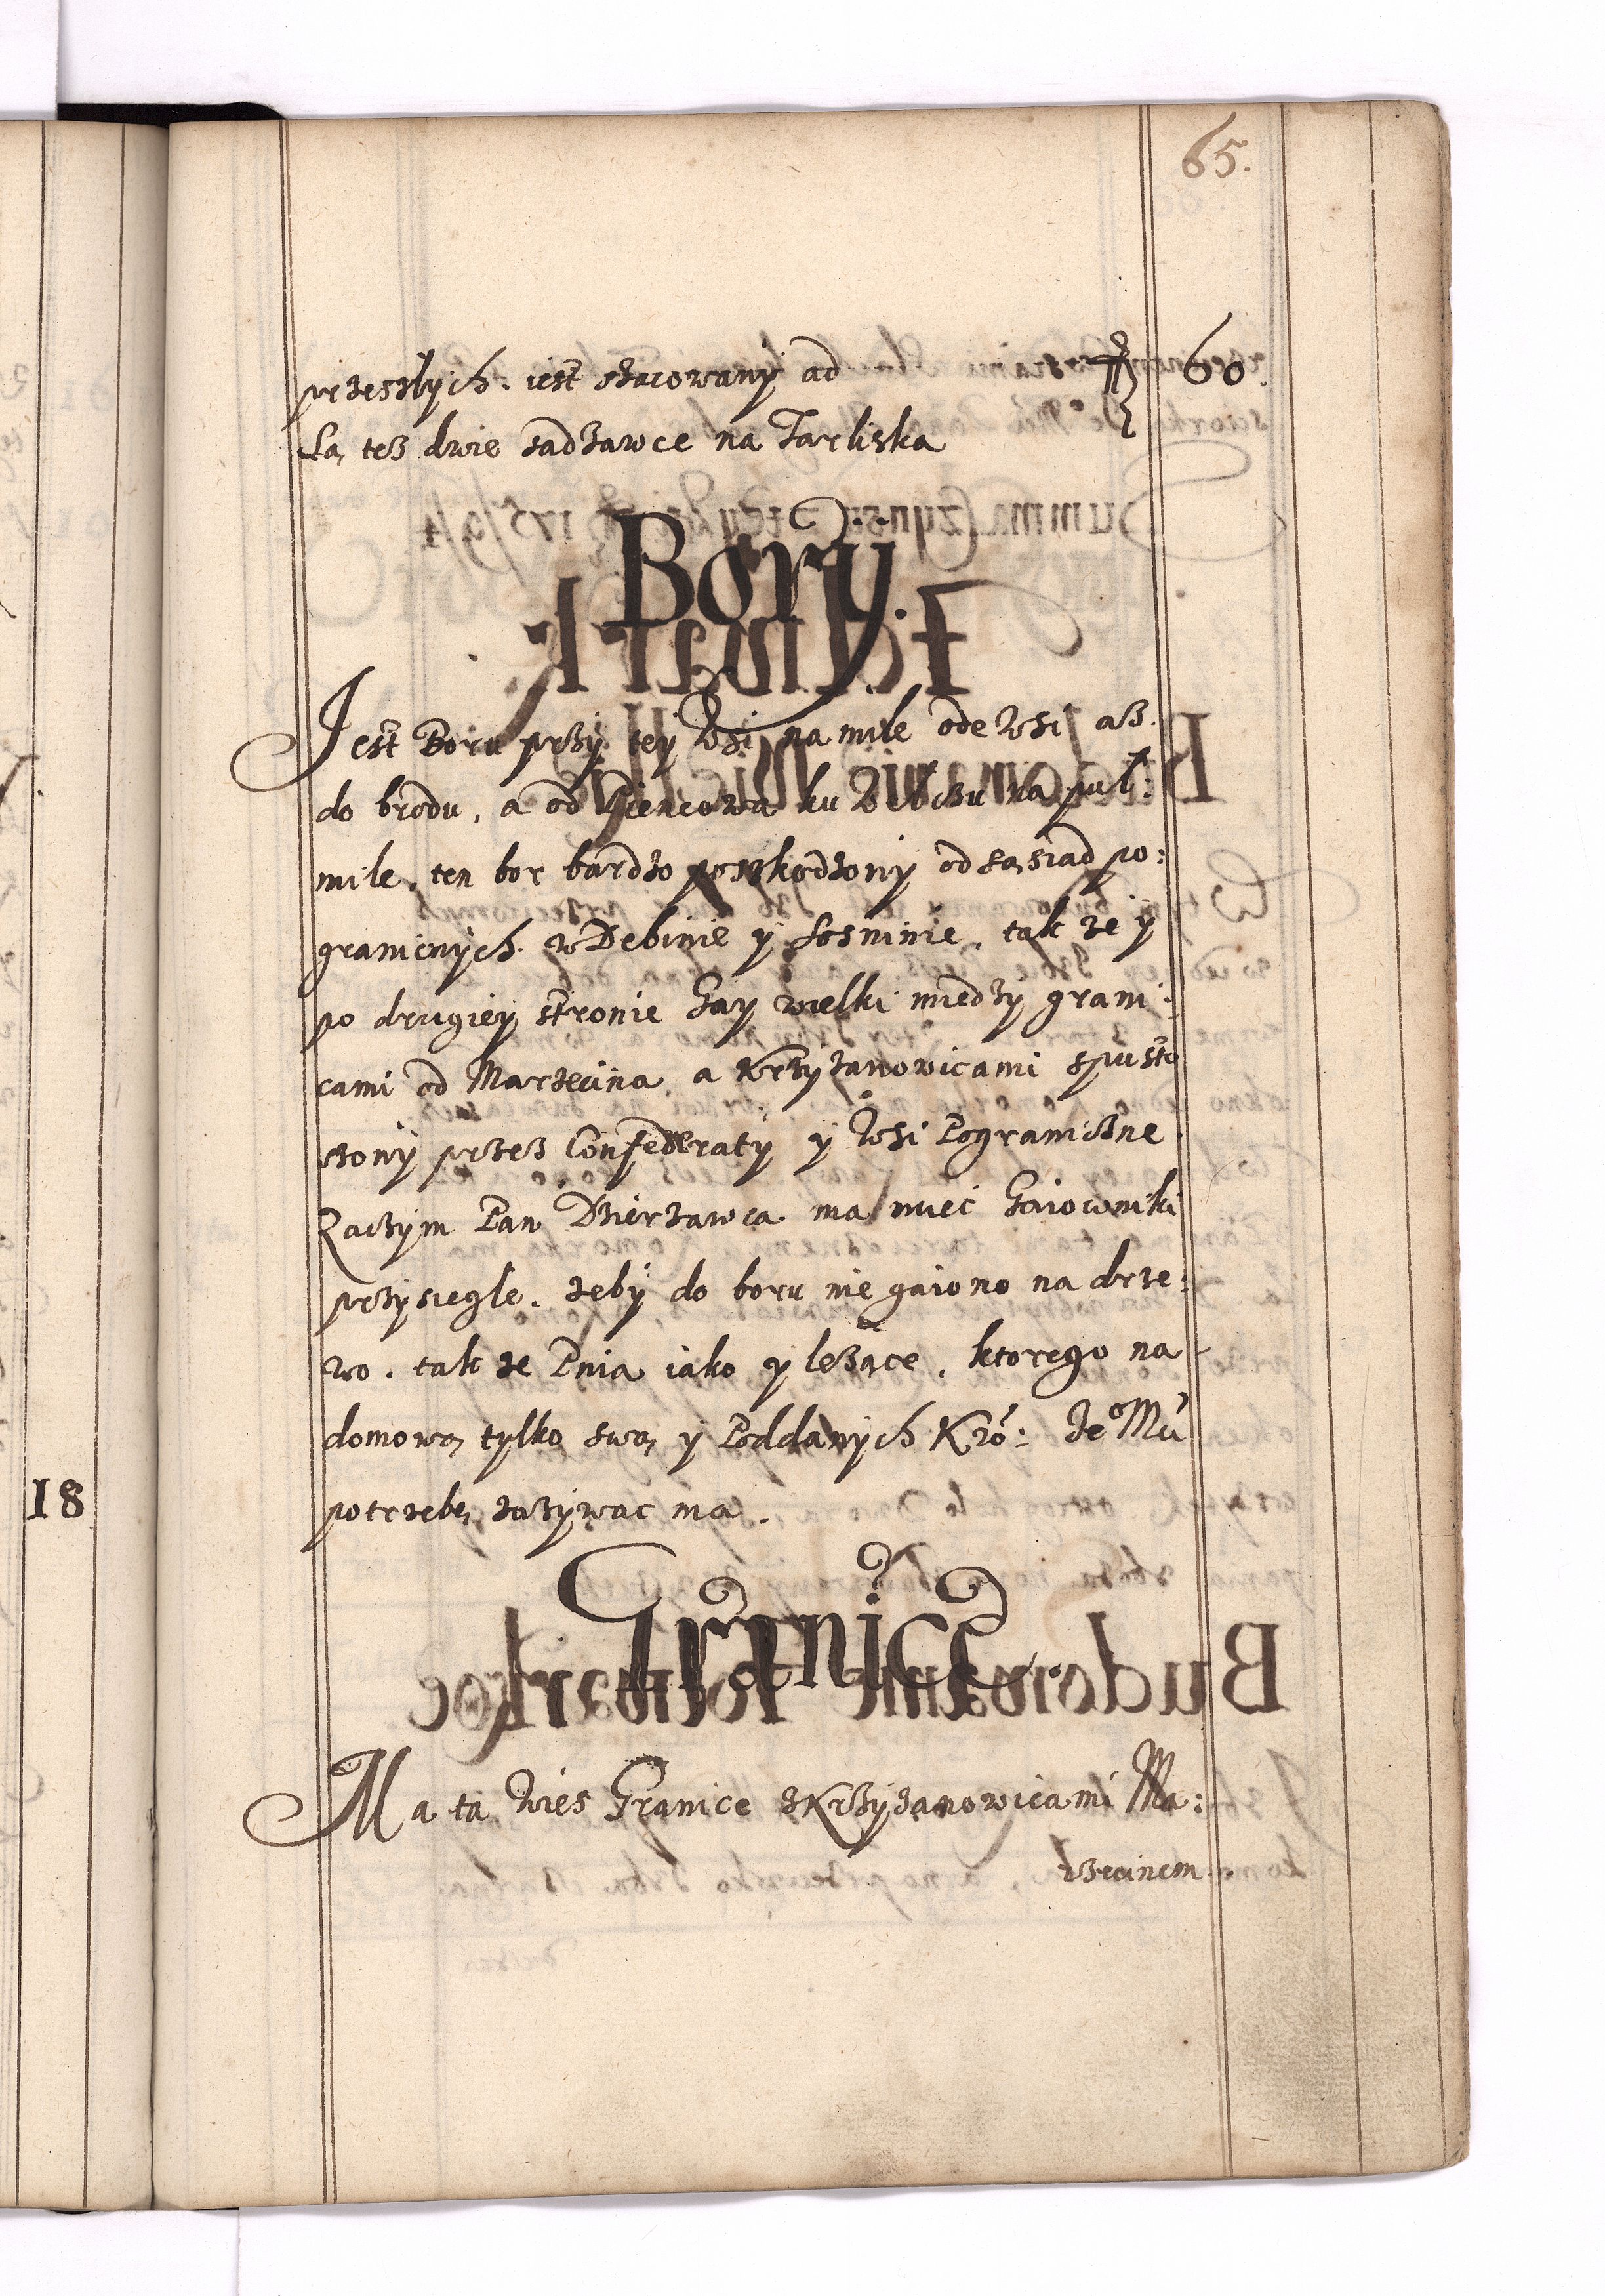 65.
przeszłych. iest szacowany ad ff 60.
Są tesz dwie sadzawce na Tarliska
Bory.
Jest Boru przy tey Wsi na mile ode Wsi asz
do brodu, a od ku na pul:
mile, ten bor bardzo poszkodzony od sąsiad po:
granicnych w Debinie y Sosninie, tak ze y
po drugiey stronie Gay wielki miedzy grani:
cami od Marzecina, a Krzyzanowicami spusto
szony przesz Confederaty y Wsi Pograniczne.
Zaczym Pan Dzierzawca ma miec Gaiowniki
przysiegle, zeby do boru nie gaiono na drze:
wo, tak ze Pnia iako y leżące, ktorego na
domową tylko swą y Poddanych Kró: Je° Mci
potrzebę zazywac ma.
Granice
Ma ta Wies Granice z Krzyzanowicami Ma:
rzecinem.
18